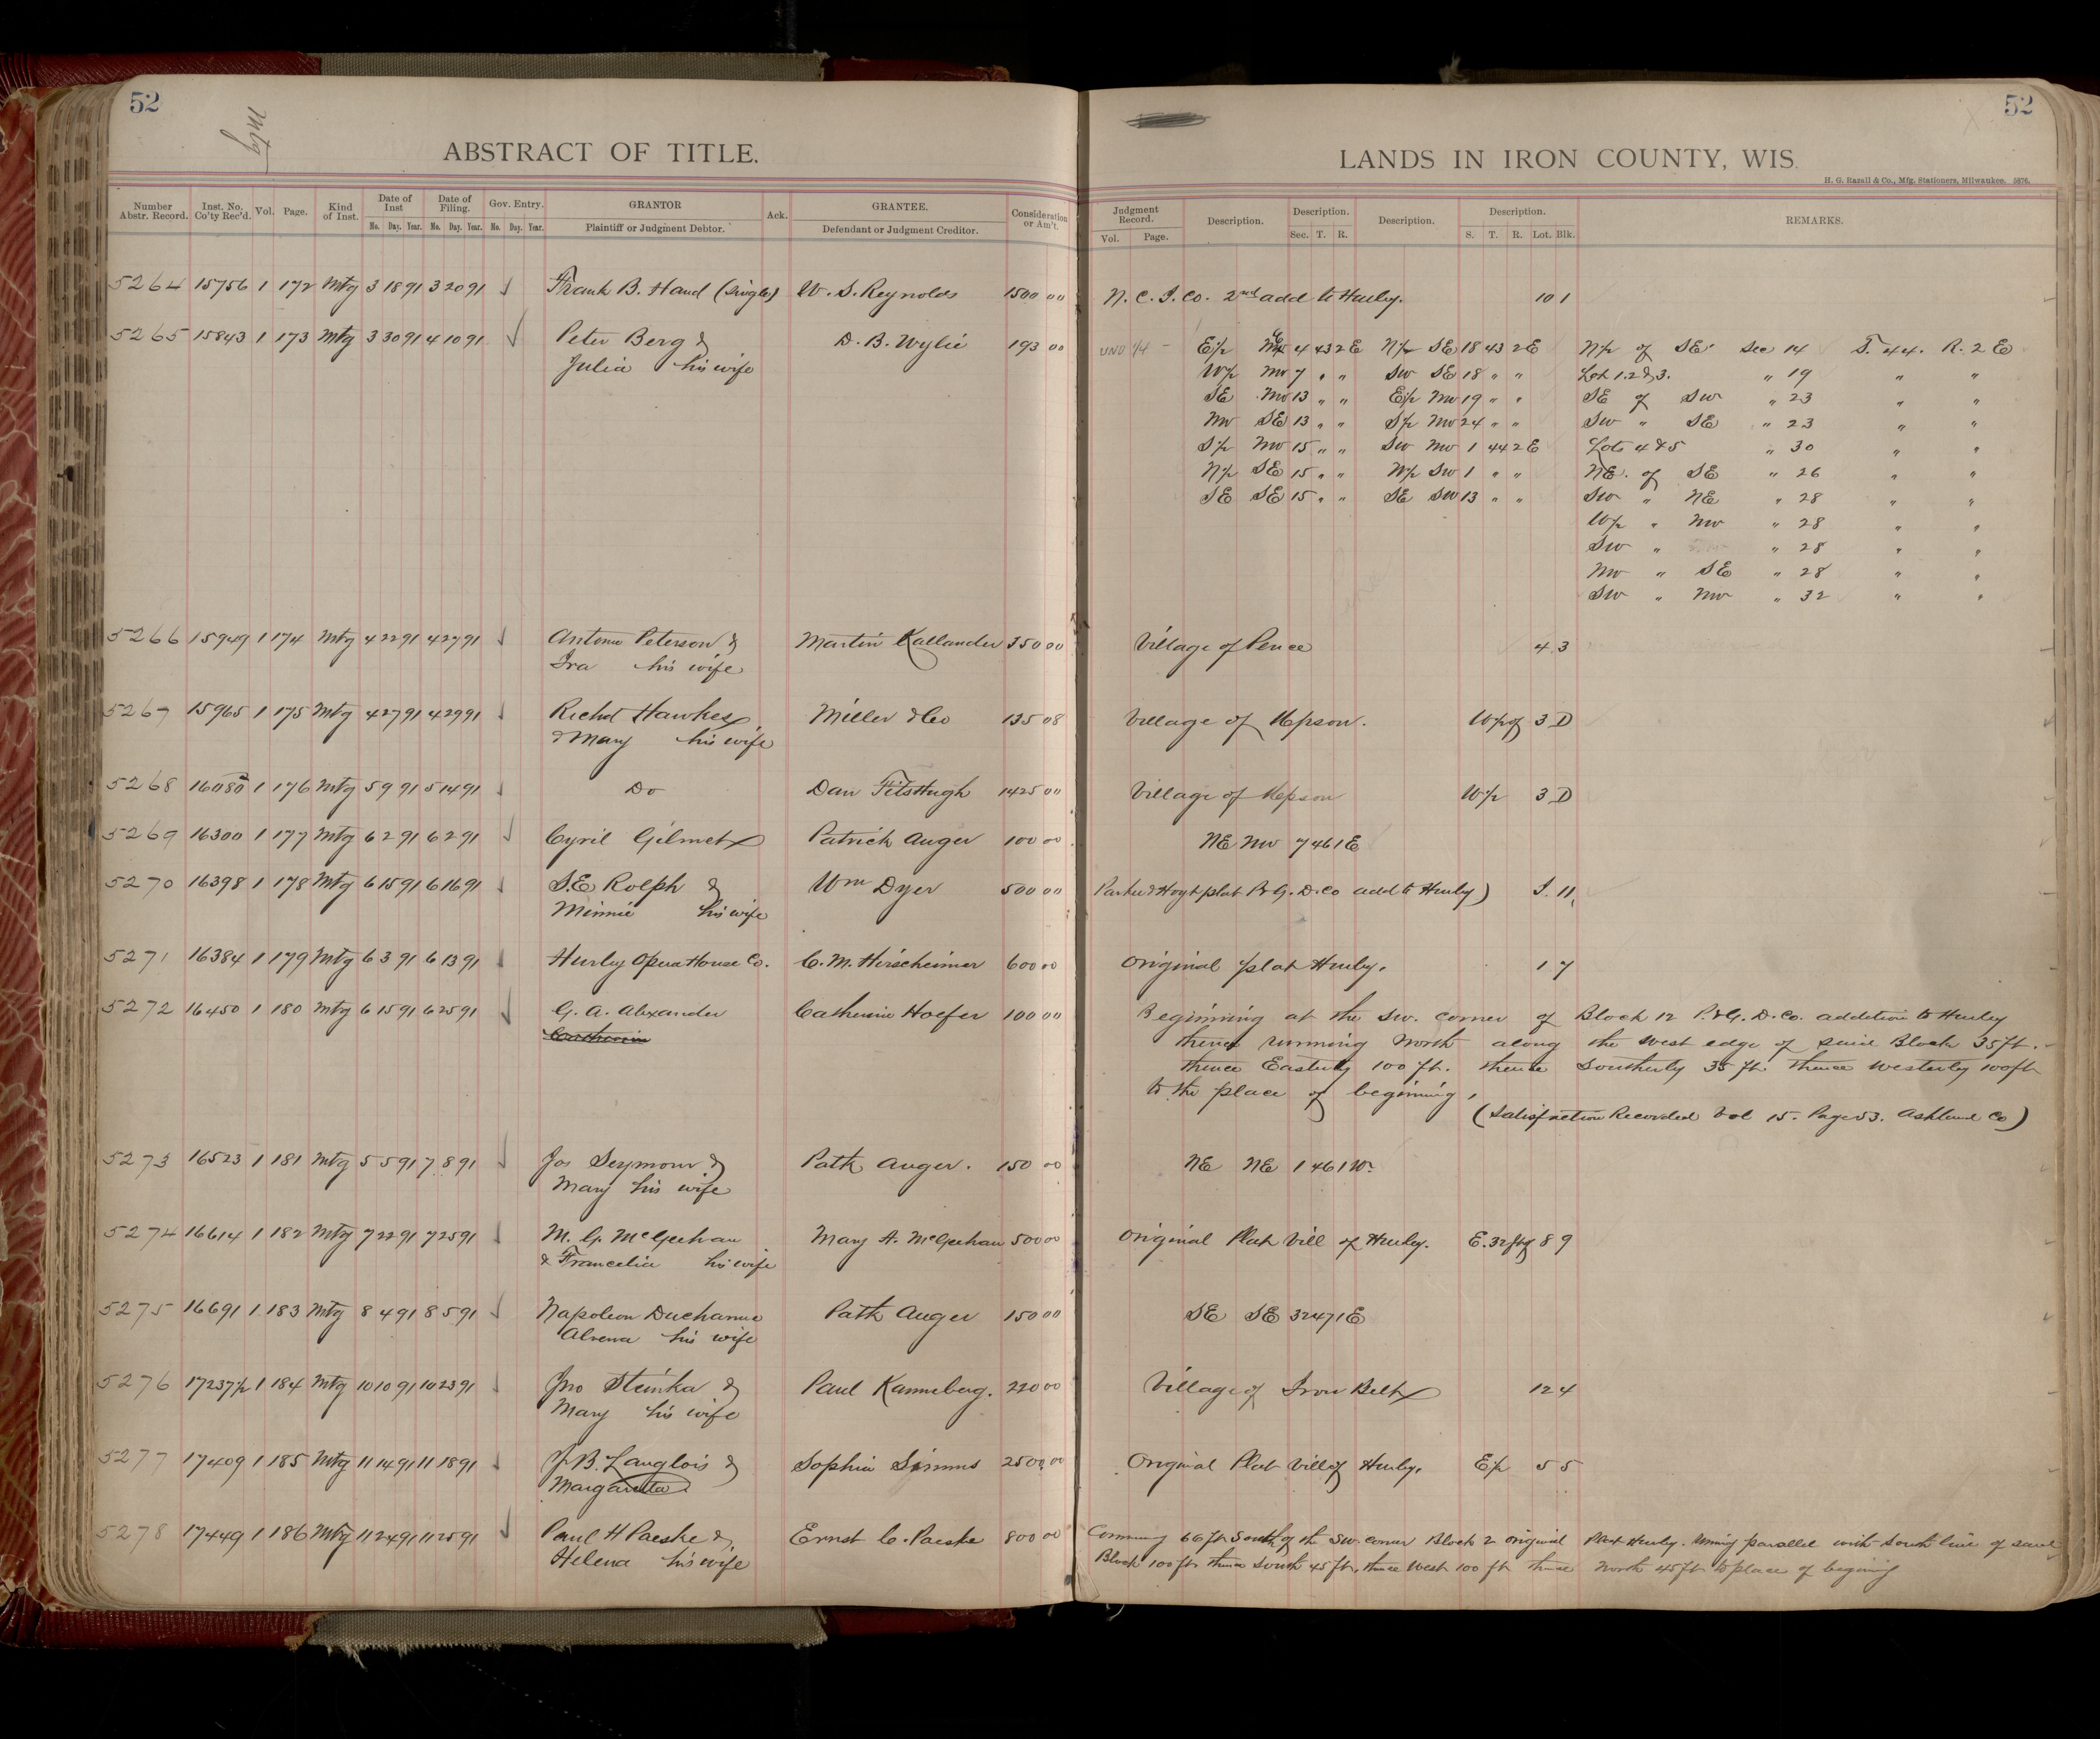 52
Mtg
ABSTRACT OF TITLE.
Number Abstr. Record. Inst. No. Co'ty Rec'd. Vol. Page. Kind of Inst. Date of Inst Mo. Day. Year. Date of Filing. Mo. Day. Year. Gov. Entry. No. Day. Year. GRANTOR Plaintiff or Judgment Debtor. Ack. GRANTEE. Defendant or Judgment Creditor. Consideration or Am't.
52
LANDS IN IRON COUNTY, WIS.
H. G. Razall & Co., Mfg. Stationers, Milwaukee. 5876.
Judgment Record. Vol. Page. Description. Description. Sec. T. R. Description. Description. S. T. R. Lot. Blk. REMARKS.
5264 15756 1 172 Mtg 3 18 91 3 20 91 Frank B. Hand (Single) W. S. Reynolds 1500 00 N. C. I. Co. 2nd add to Hurley. 10 1
5265 15843 1 173 Mtg 3 30 91 4 10 91 Peter Berg & D. B. Wylie 193 00 UND 1/4 - E 1/2 4 43 2 E N 1/2 SE 18 43 2 E N 1/2 of SE Sec 14 T. 44. R. 2 E
Julia his wife W 1/2 NW 7 " " SW SE 18 " " Lot 1. 2 & 3. " 19 " "
SE NW 13 " " E 1/2 NW 19 " " SE of SW " 23 " "
NW SE 13 " " S 1/2 NW 24 " " SW " SE " 23 " "
S 1/2 NW 15 " " SW NW 1 44 2 E Lots 4 & 5 " 30 " "
N 1/2 SE 15 " " W 1/2 SW 1 " " NE. of SE " 26 " "
SE SE 15 " " SE SW 13 " " SW " NE " 28 " "
W 1/2 " NW " 28 " "
SW " " 28 " "
NW " SE " 28 " "
SW " NW " 32 " "
5266 15949 1 174 Mtg 4 22 91 4 27 91 Antone Peterson & Martin Kallander 350 00 Village of Pence 4 3
Ira his wife
5267 15965 1 175 Mtg 4 27 91 4 29 91 Richd Hawkes Miller & Co 135 08 Village of Upson. W 1/2 of 3 D
& Mary his wife
5268 16080 1 176 Mtg 5 9 91 5 14 91 Do Dan FitsHugh 1425 00 Village of Upson W 1/2 3 D
5269 16300 1 177 Mtg 6 2 91 6 2 91 Cyril Gilmet Patrick Auger 100 00 NE NW 7 46 1 E
5270 16398 1 178 Mtg 6 15 91 6 16 91 S.E Rolph & Wm Dyer 500 00 Parker & Hoyt plat P & G. D. Co add to Hurley) 11
Minnie his wife
5271 16384 1 179 Mtg 6 3 91 6 13 91 Hurley Opera House Co. C. M. Hirscheimer 600 00 Original plat Hurley. 1 7
5272 16450 1 180 Mtg 6 15 91 6 25 91 G. A. Alexander Catherine Hoefer 100 00 Beginning at the SW. corner of Block 12 P. & G. D. Co. addition to Hurley
Catherine thence running North along the West edge of said Block 35 ft. -
thence Easterly 100 ft. thence Southerly 35 ft thence Westerly 100 ft
to the place of beginning,
(Satisfaction Recorded Vol 15. Page 53. Ashland Co)
5273 16523 1 181 Mtg 5 5 91 7 8 91 Jos Seymour & Patk Auger. 150 00 NE NE 1 46 1 W.
Mary his wife
5274 16614 1 182 Mtg 7 22 91 7 25 91 M. G. McGeehan Mary A. McGeehan 500 00 Original Plat Vill of Hurley. E. 32 ft of 8 9
& Francelia his wife
5275 16691 1 183 Mtg 8 4 91 8 5 91 Napoleon Ducharme Patk Auger 150 00 SE SE 32 47 1 E
Alvena his wife
5276 17237 1/2 1 184 Mtg 10 10 91 10 23 91 Jno Steinka & Paul Kanneberg. 220 00 Village of Iron Belt 12 4
Mary his wife
5277 17409 1 185 Mtg 11 14 91 11 18 91 J. B. Langlois & Sophia Simms 2500 00 Original Plat Vill of Hurley. E 1/2 5 5
Margaretta
5278 17449 1 186 Mtg 11 24 91 11 25 91 Paul H Paeske & Ernst C. Paeske 800 00 66 ft South of the SW. corner Block 2 original Plat Hurley. parallel with South line of said
Helena his wife Block 100 ft thence South 45 ft, thence West 100 ft thence North 45 ft to place of begining